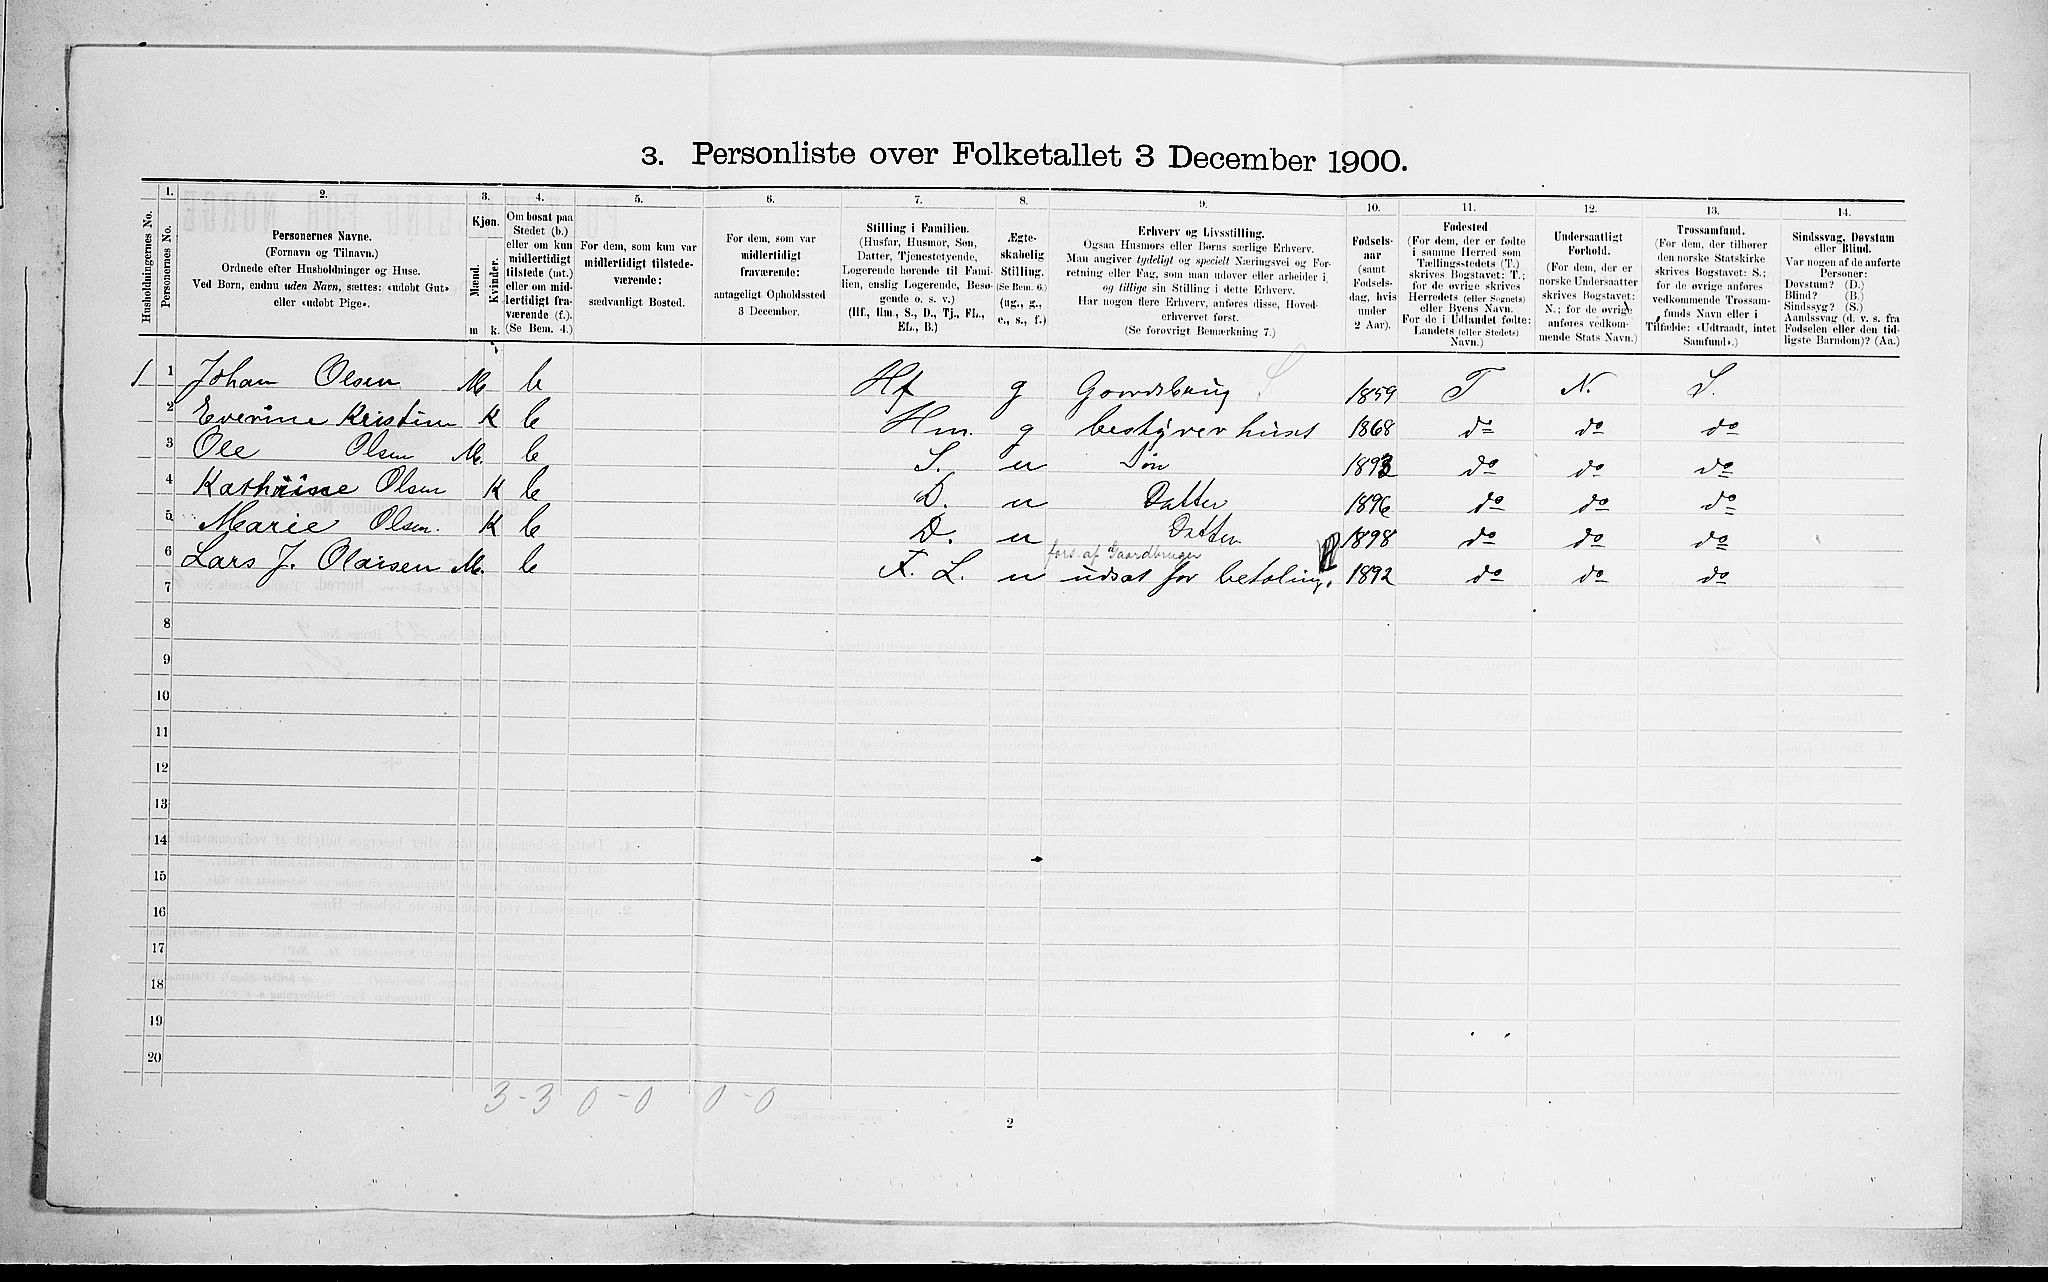 3. Personliste over Folketallet 3 December 1900.
Husholdningernes No.
1. Personernes No.
2. Personernes Navne.
(Fornavn og Tilnavn.)
Ordnede efter Husholdninger og Huse.
Ved Børn, endnu uden Navn, sættes: «udøbt Gut»
eller «udøbt Pige».
3. Kjøn.
Mænd. Kvinder.
m k.
4. Om bosat paa
Stedet (b.)
eller om kun
midlertidigt
tilstede (mt.)
eller om mid-
lertidigt fra-
værende (f.).
(Se Bem. 4.)
5. For dem, som kun var
midlertidigt tilstede-
værende:
sædvanligt Bosted.
6. For dem, som var
midlertidigt
fraværende:
antageligt Opholdssted
3 December.
7. Stilling i Familien.
(Husfar, Husmor, Søn,
Datter, Tjenestetyende,
Logerende hørende til Fami-
lien, enslig Logerende, Besø-
gende o. s. v.)
(Hf., Hm., S., D., Tj., FL.,
EL., B.)
8. Ægte-
skabelig
Stilling.
(Se Bem. 6.)
(ug., g.,
e., s., f.)
9. Erhverv og Livsstilling.
Ogsaa Husmors eller Børns særlige Erhverv.
Man angiver tydeligt og specielt Næringsvei og For-
retning eller Fag, som man udøver eller arbeider i,
og tillige sin Stilling i dette Erhverv.
Har nogen flere Erhverv, anføres disse, Hoved-
erhvervet først.
(Se forøvrigt Bemærkning 7.)
10. Fødsels-
aar
(samt
Fødsels-
dag, hvis
under
2 Aar).
11. Fødested
(For dem, der er fødte
i samme Herred som
Tællingsstedets (T.)
skrives Bogstavet: T.;
for de øvrige skrives
Herredets (eller Sognets)
eller Byens Navn.
For de i Udlandet fødte:
Landets (eller Stedets)
Navn.)
12. Undersaatligt
Forhold.
(For dem, der er
norske Undersaatter
skrives Bogstavet:
N.; for de øvrige
anføres vedkom-
mende Stats Navn.)
13. Trossamfund.
(For dem, der tilhører
den norske Statskirke
skrives Bogstavet: S.;
for de øvrige anføres
vedkommende Trossam-
funds Navn eller i
Tilfælde: «Udtraadt, intet
Samfund».)
14. Sindssvag, Døvstum
eller Blind.
Var nogen af de anførte
Personer:
Døvstum? (D.)
Blind? (B.)
Sindssyg? (S.)
Aandssvag (d. v. s. fra
Fødselen eller den tid-
ligste Barndom)? (Aa.)
1 1 Johan Olsen M. b Hf g Gaardsbrug 1859 T N. S.
2 Everine Kristine K b Hm. g bestyrer huset 1868 do do do
3 Ole Olsen M. b S. u Søn 1893 do do do
4 Kathrine Olsen K b D. u Datter 1896 do do do
5 Marie Olsen. K b D. u Datter 1898 do do do
fors. af Gaardbruger
6 Lars J. Olaisen M. b F. L. u udsat for betaling. 1892 do do do
7
8
9
10
11
12
13
14
15
16
17
18
19
20
3-3 0-0 0-0
2